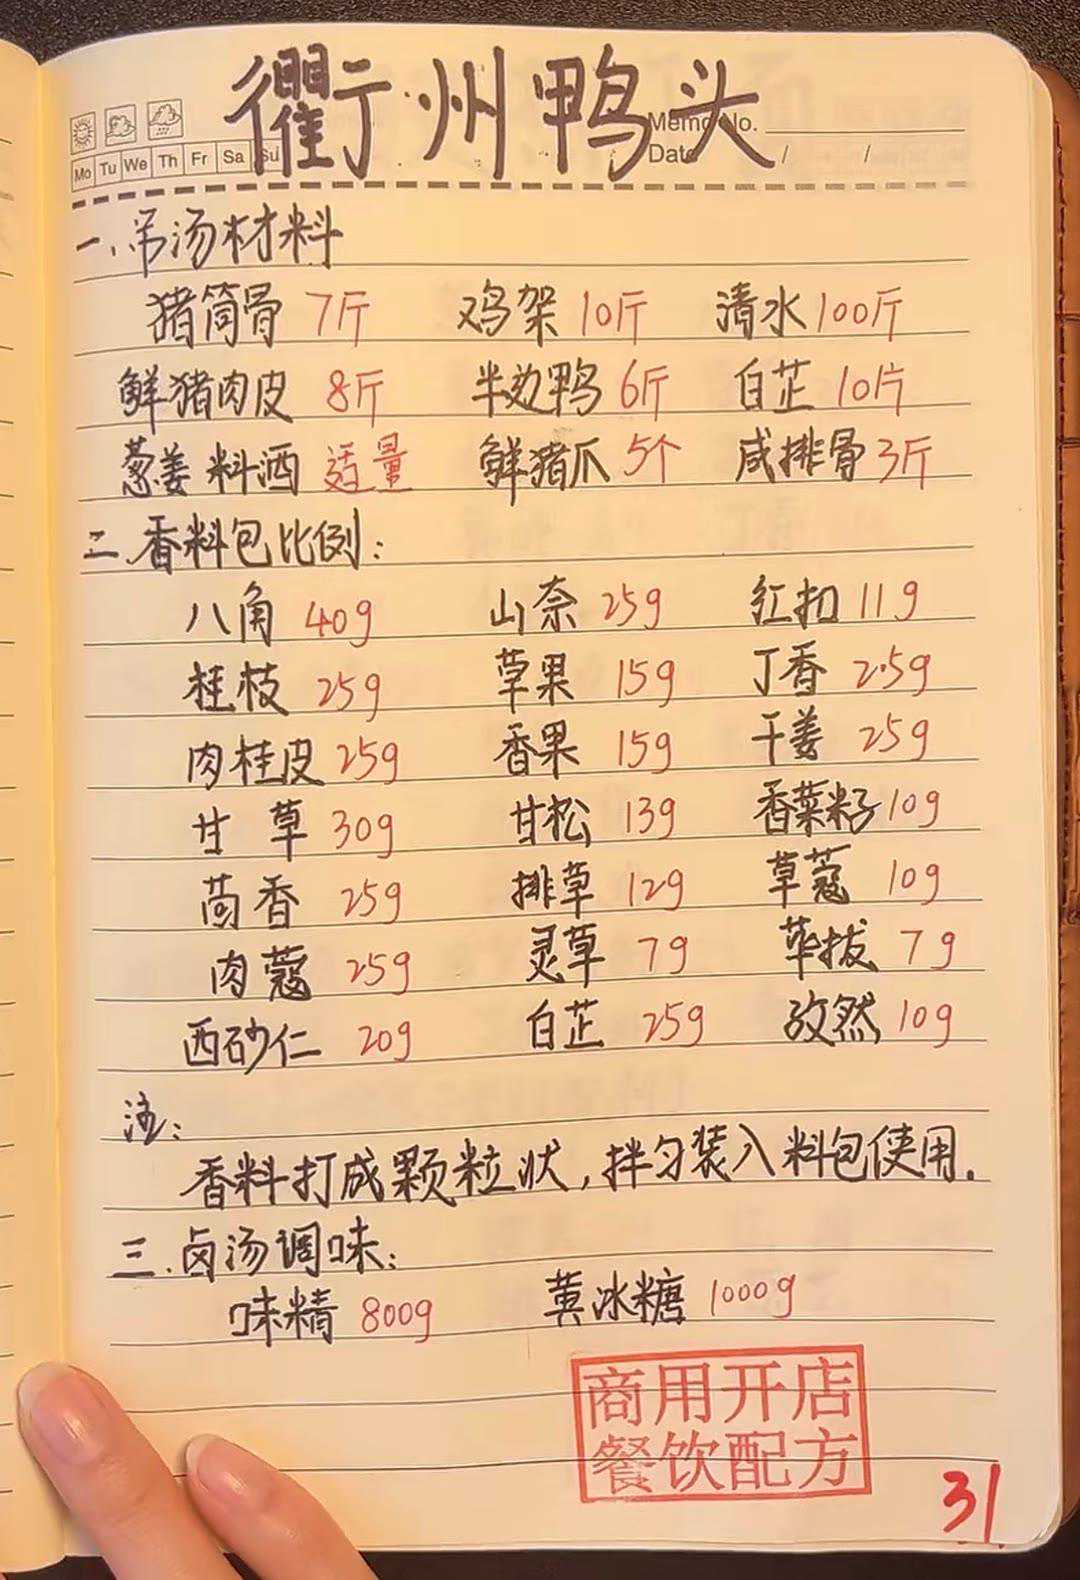 衢州鸭头
Memo No.
Mo Tu We Th Fr Sa Su
Date / /
一、吊汤材料
猪筒骨 7斤 鸡架 10斤 清水 100斤
鲜猪肉皮 8斤 半边鸭 6斤 白芷 10片
葱姜 料酒 适量 鲜猪爪 5个 咸排骨 3斤
二.香料包比例:
八角 40g 山奈 25g 红扣 11g
桂枝 25g 草果 15g 丁香 2.5g
肉桂皮 25g 香果 15g 干姜 25g
甘草 30g 甘松 13g 香菜籽 10g
茴香 25g 排草 12g 草蔻 10g
肉蔻 25g 灵草 7g 荜拔 7g
西砂仁 20g 白芷 25g 孜然 10g
注:
香料打成颗粒状,拌匀装入料包使用.
三.卤汤调味:
味精 800g 黄冰糖 1000g
商用开店
餐饮配方
31